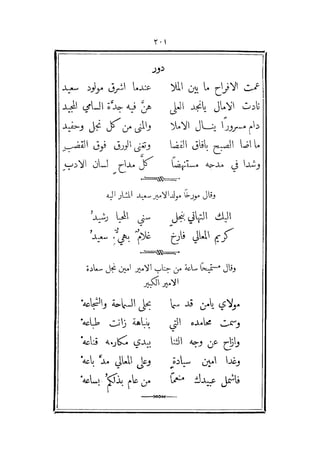 ٢٠١
دور
عمت الافراح ما بين الملا عندما اشرق مولود سعيد
نادت الامال يانجد العلى هنَّ فيه جدَّهُ السامي المجيد
دام مسرورًا ينال الاملا والمنى من كل نجل وحفيد
ما اضا الصبح بافاق الفضا وتغنى الورق فوق القضب
وشدا في مدحه مستنهضًا كلَّ مداح لسان الادب
وقال مورخًا مولد الامير سعيد المشار اليه
اليك التهاني بنجلٍ سني المحيا رشيدُ
كريم المعالي فارخ غلامٌ بهيٌّ سعيدُ
وقال مستميحًا ساعة من جناب الامير امين نجل سعادة
الامير الكبير
مولاي يامن قد سما بحلى السماحة والشجاعه
وسمت محامده التي بنباهة زانت طباعه
وازاح عن وجه الثنا بيدي مكارمه قناعه
وغدا امين سيادةٍ وعلى المعالي مدَّ باعه
فاشمل عبيدك منعمًا من عام بذلكمُ بساعه